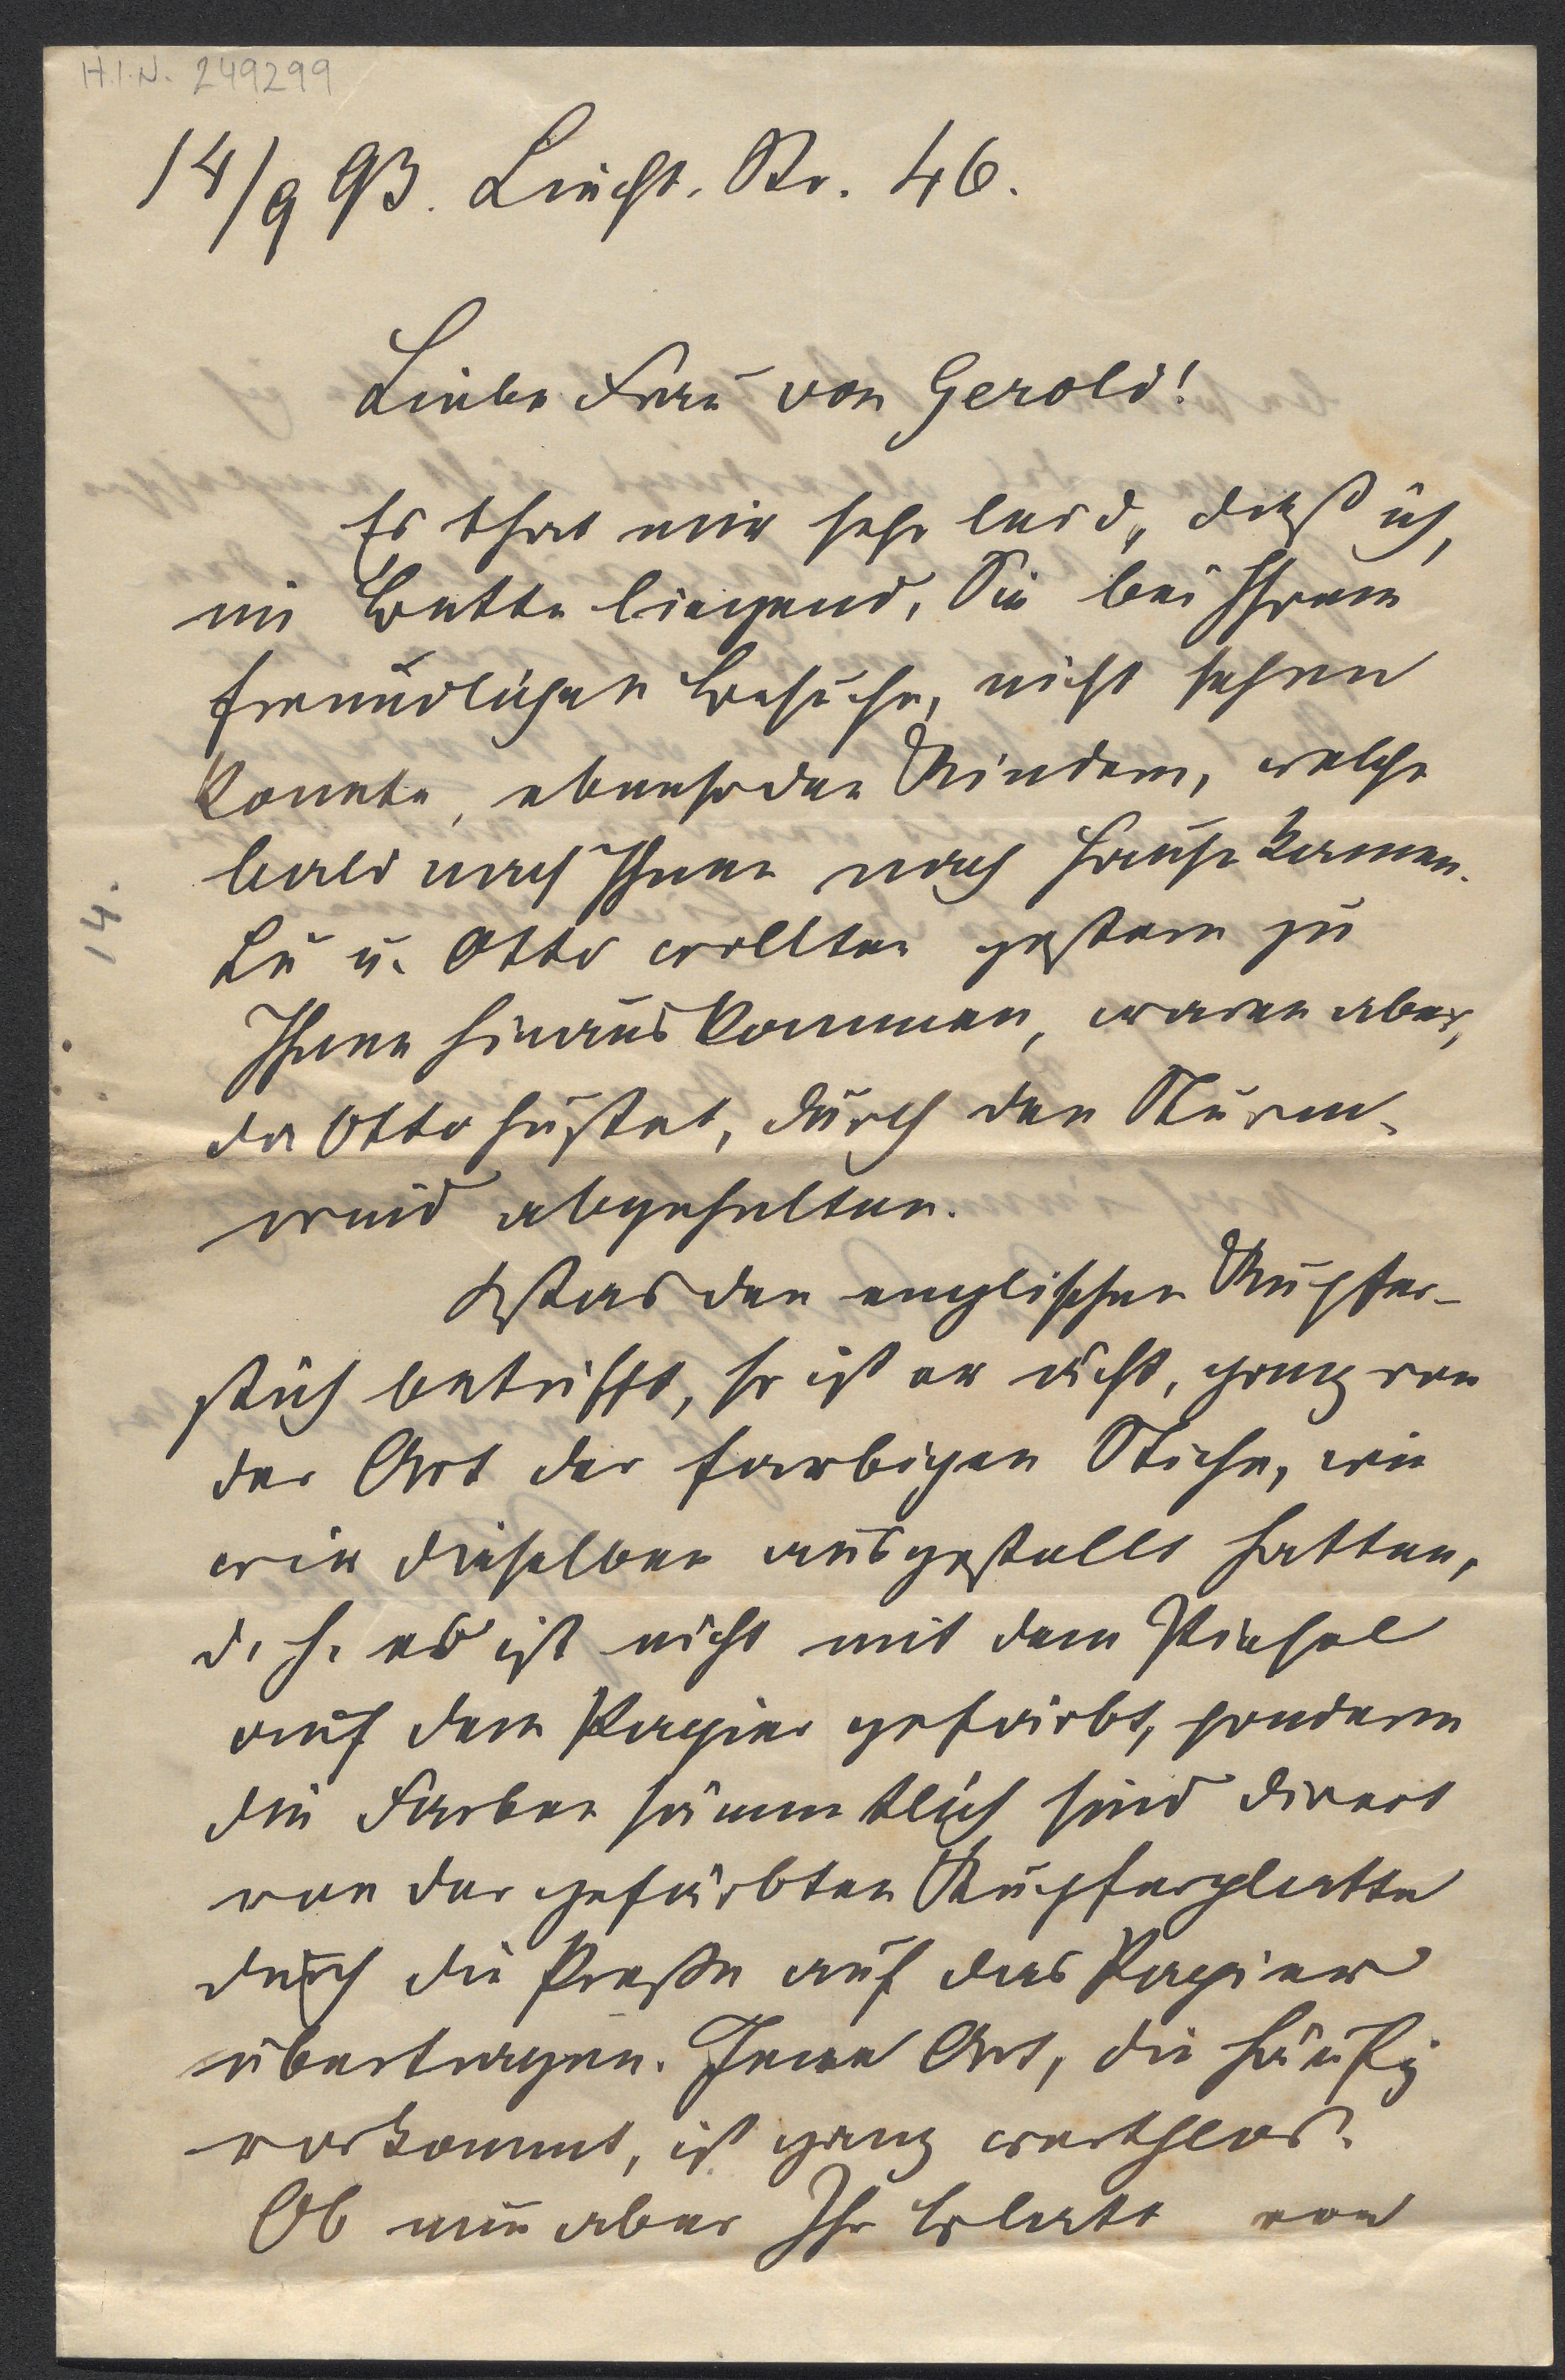 H.I.N. 249299
14/9 93. Liecht. Str. 46.
Liebe Frau von Gerold!
Es that mir sehr leid, daß ich,
im Bette liegend, Sie bei Ihrem
freundlichen Besuche, nicht sehen
konnte, ebenso den Kindern, welche
bald nach Ihnen nach Hause kamen.
Lu u. Otto wollten gestern zu
Ihnen hinaus kommen, waren aber,
da Otto hustet, durch den Sturm-
wind abgehalten.
Was den englischen Kupfer-
stich betrifft, so ist er echt, ganz von
der Art der farbigen Stiche, wie
wir dieselben ausgestellt hatten,
d. h. es ist nicht mit dem Pinsel
auf dem Papier gefärbt, sondern
die Farben sämmtlich sind direct
von der gefärbten Kupferplatte
durch die Presse auf das Papier
übertragen. Jene Art, die häufig
vorkommt, ist ganz werthlos.
Ob nun aber Ihr Blatt von
14.